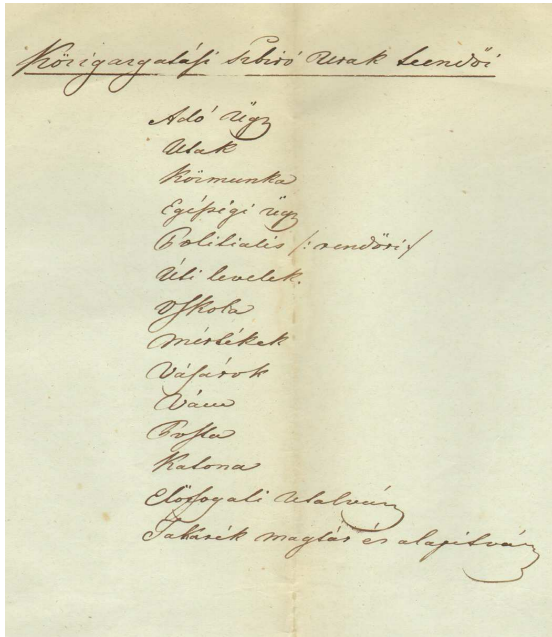 Közigazgatási Szbiró Urak teendői
Adó Ügy
Utak
Közmunka
Egéßségi ügy
Politialis /: rendőri /
Úti levelek.
Oskola
Mértékek
Vásárok
Vám
Posta
Katona
Előfogati Utalvány
Takarék magtár és alapitvány